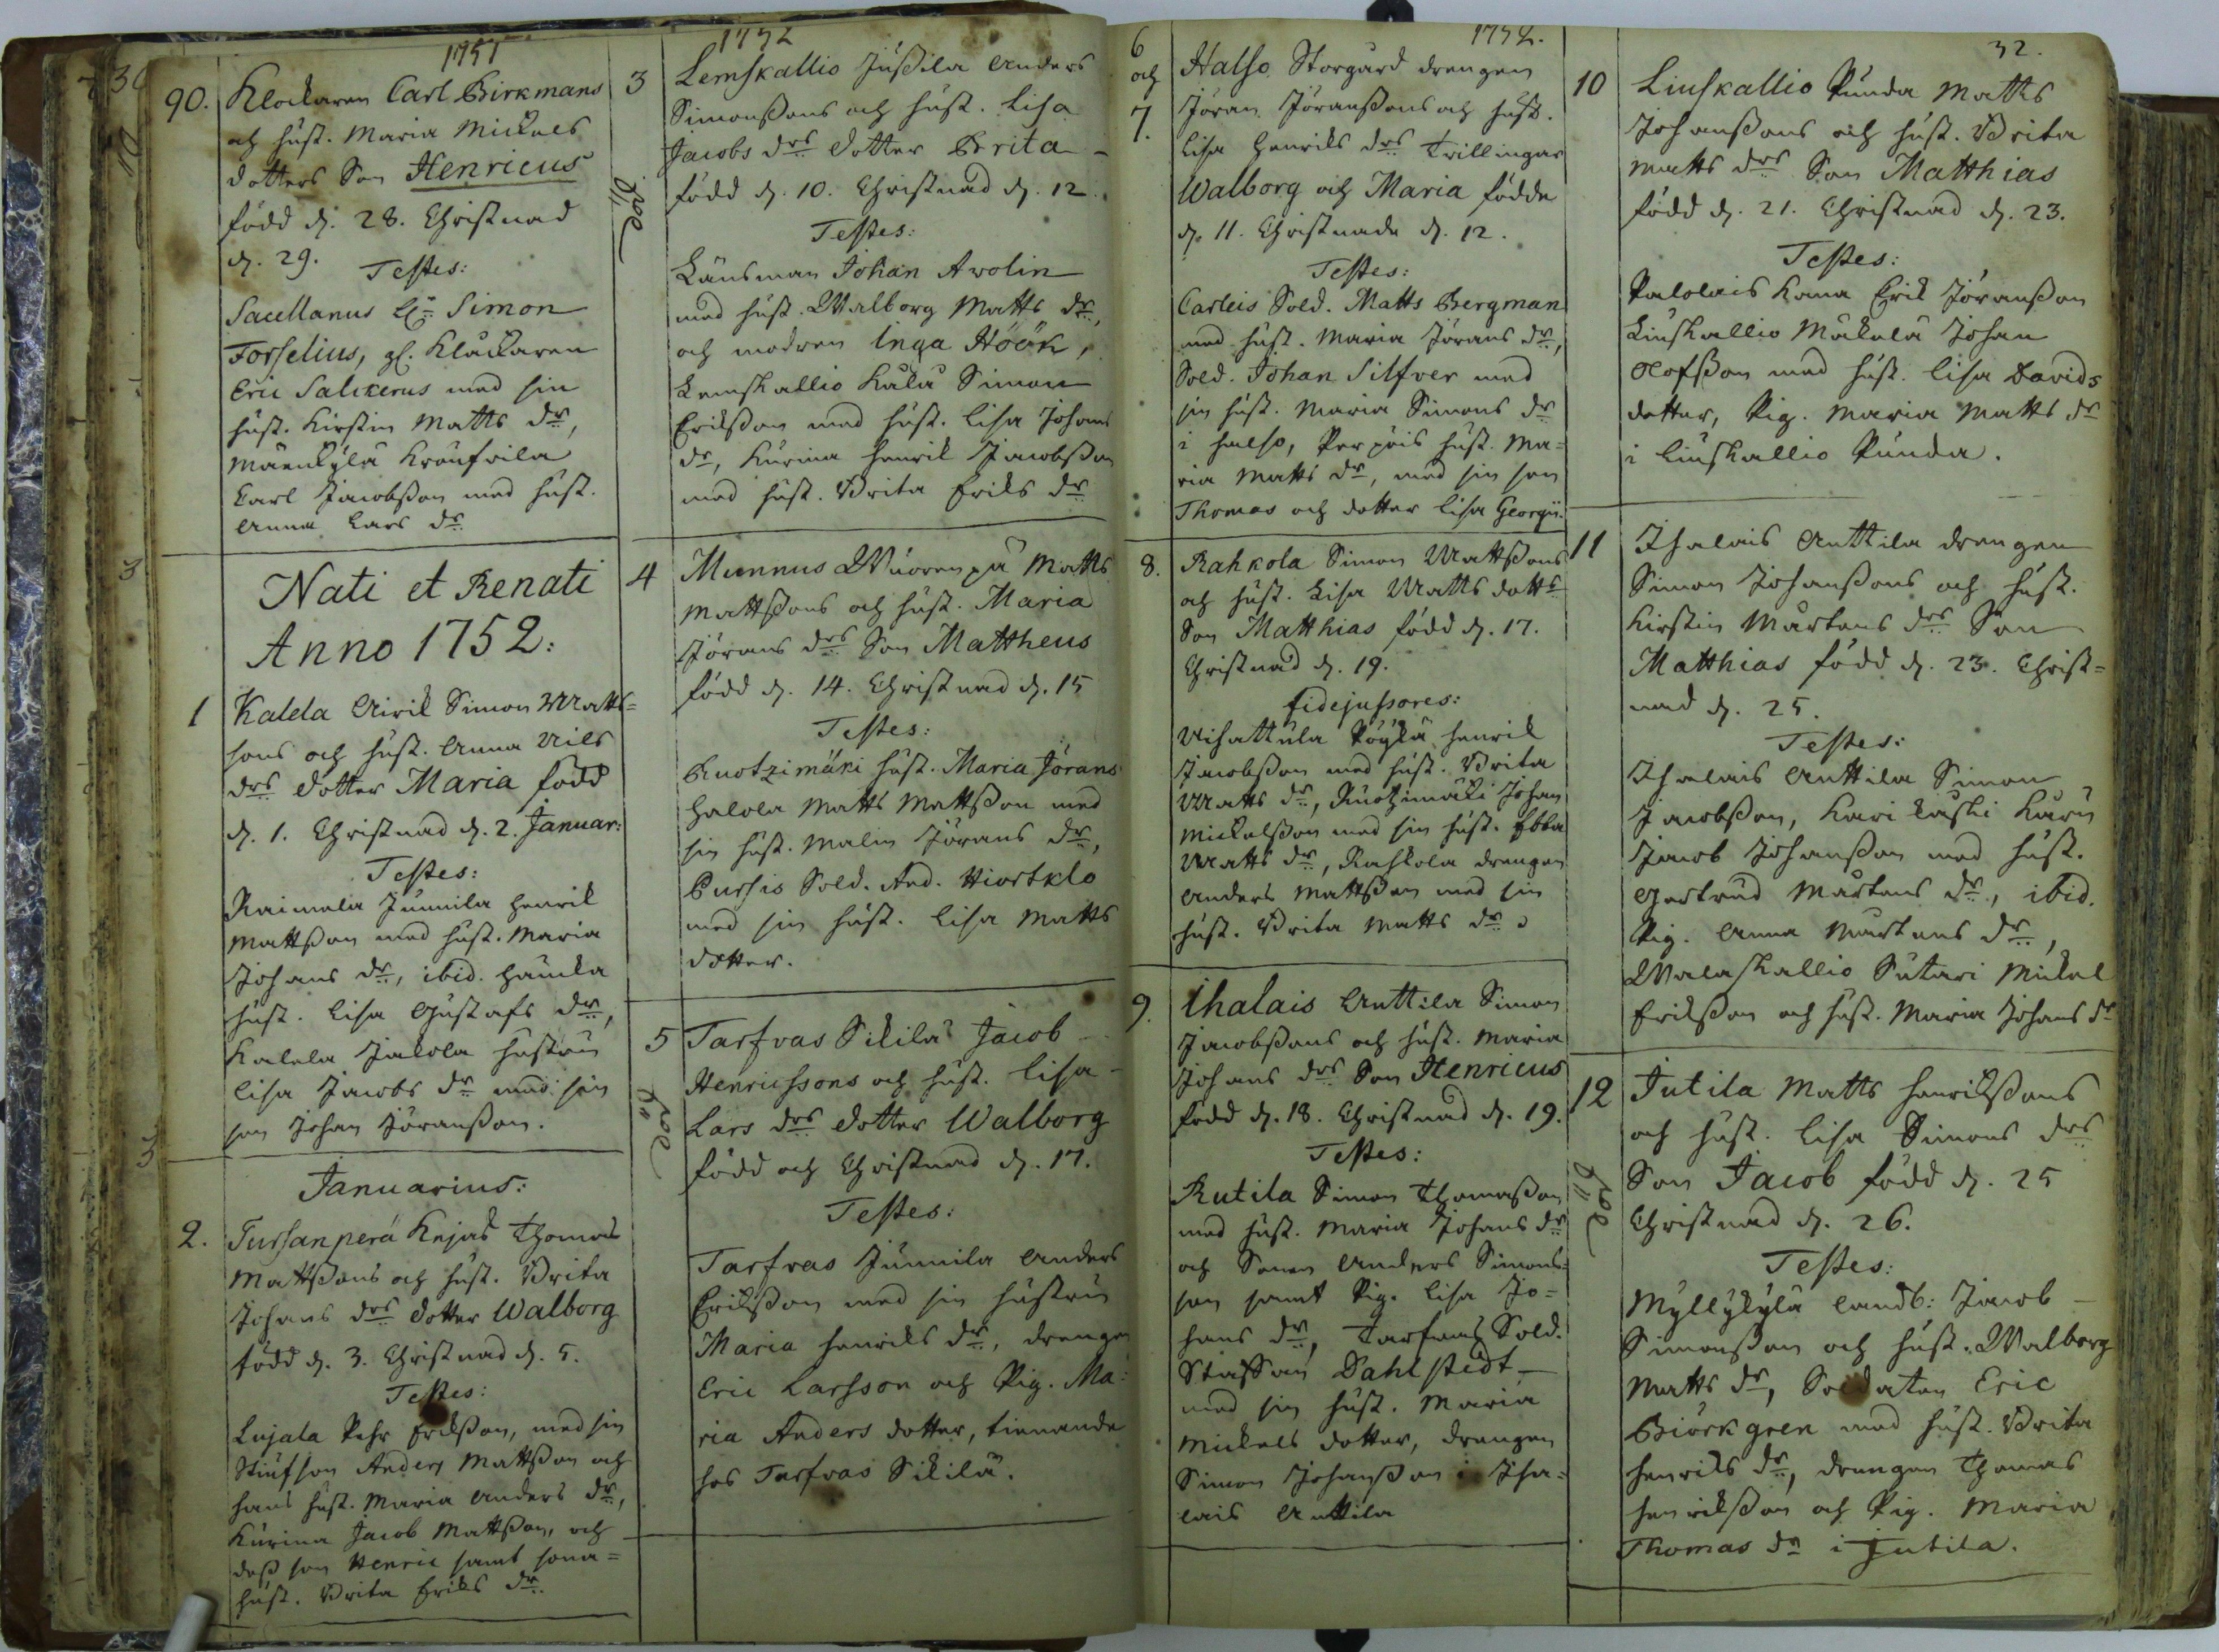 1751
90. Klockaren Carl Birkmans
och hust. Maria Mickels
dotters Son Henricus
född d. 28. Christnad
d. 29. Testes:
Sacellanus Simon
Forselius, gl. Klåckaren
Eric Salixerus med sin
hust. Kirstin Matts dr,
Mäenkylä
Carl Jacobsson med hust.
Anna Lars dr
Nati et Renati
Anno 1752:
1 Kalela Simon Matts=
sons och hust. Anna Nils
drs dotter Maria född
d. 1. Christnad d. 2. Januar:
Testes:
Raimela Junnila Henrik
Mattsson med hust. Maria
Johans dr, ibid.
hust. Lisa Gustafs dr,
Kalela Jakola hustru
Lisa Jacobs dr med sin
son Johan Jöransson.
Januarius:
2. Tursanperä Thomas
Mattssons och hust. Brita
Johans drs dotter Walborg
född d. 3. Christnad d. 5.
Testes:
Lujala Pehr Eriksson, med sin
Stiufson Anders Mattsson och
hans hust. Maria Anders dr,
Kurina Jacob Mattsson, och
dess son Henric samt sona=
hust. Brita Eriks dr.
1752
3 Lemskallio Jussila Anders
Simonssons och hust. Lisa
Jacobs drs dotter Brita
född d. 10. Christnad d. 12.
död
Testes:
Länsman Johan Awolin
med hust. Walborg Matts dr,
och modren Inga Höök,
Lemskallio Simon
Eriksson med hust. Lisa Johans
dr, Kurina Henrik Jacobsson
med hust. Brita Eriks dr
4 Munnus Wuorenpä Matts
Mattssons och hust. Maria
Jörans drs Son Mattheus
född d. 14. Christnad d. 15
Testes:
Ruotzimäki hust. Maria Jörans
Halola Matts Mattsson med
sin hust. Malin Jörans dr,
Cursis Sold. And. Hiortklo
med sin hust. Lisa Matts
dotter.
5 Tarfvas Sikilä Jacob
Henricssons och hust. Lisa
Lars drs dotter Walborg
död
född och Christnad d. 17.
Testes:
Tarfvas Junnila Anders
Eriksson med sin hustru
Maria Henriks dr, drengen
Eric Larsson och Pig. Ma=
ria Anders dotter, tienande
hos Tarfvas Sikilä.
1752.
6 och 7. Halso Storgård drengen
Jöran Jöranssons och hust.
Lisa Henriks drs Tvillingar
Walborg och Maria födde
d. 11. Christnade d. 12.
Testes:
Carleis Sold. Matts Bergman
med hust. Maria Jörans dr,
Sold. Johan Silfver med
sin hust. Maria Simons dr
i Halso, hust. Ma=
ria Matts dr, med sin son
Thomas och dotter Lisa Georgii.
8. Rahkola Simon Mattssons
och hust. Lisa Matts dotts
Son Matthias född d. 17.
Christnad d. 19.
fidejussores:
Uhattula Henrik
Jacobsson med hust. Brita
Matts dr, Ruotzimäki Johan
Mickelsson med sin hust. Ebba
Matts dr, Rahkola drengen
Anders Mattsson med sin
hust. Brita Matts dr
9. Ihalais Anttila Simon
Jacobssons och hust. Maria
Johans drs Son Henricus
född d. 18. Christnad d. 19.
Testes:
Rutila Simon Thomasson
med hust. Maria Johans dr
och Sonen Anders Simons=
son samt Pig. Lisa Jo=
hans dr, Tarfvas Sold.
Staffan Dahlstedt
med sin hust. Maria
Mickels dotter, drengen
Simon Johansson i Iha=
lais Anttila
32.
10 Liuskallio Punda Matts
Johanssons och hust. Brita
Matts drs Son Matthias
född d. 21. Christnad d. 23.
Testes:
Palolais Erik Jöransson
Liuskallio Mäkelä Johan
Olofsson med hust. Lisa Davids
dotter, Pig. Maria Matts dr
i Liuskallio Punda.
11 Ihalais Anttila drengen
Simon Johanssons och hust.
Kirstin Mårtens drs Son
Matthias född d. 23. Christ=
nad d. 25.
Testes:
Ihalais Anttila Simon
Jacobsson,
Jacob Johansson med hust.
Gertrud Mårtens dr, ibid.
Pig. Anna Mårtens dr,
Walaskallio Sutari Mickel
Eriksson och hust. Maria Johans dr
12 Jutila Matts Henrikssons
och hust. Lisa Simons drs
Son Jacob född d. 25
död
Christnad d. 26.
Testes:
Myllykylä landb: Jacob
Simonsson och hust. Walborg
Matts dr, Soldaten Eric
Biörkgren med hust. Brita
Henriks dr, drengen Thomas
Henriksson och Pig. Maria
Thomas dr i Jutila.